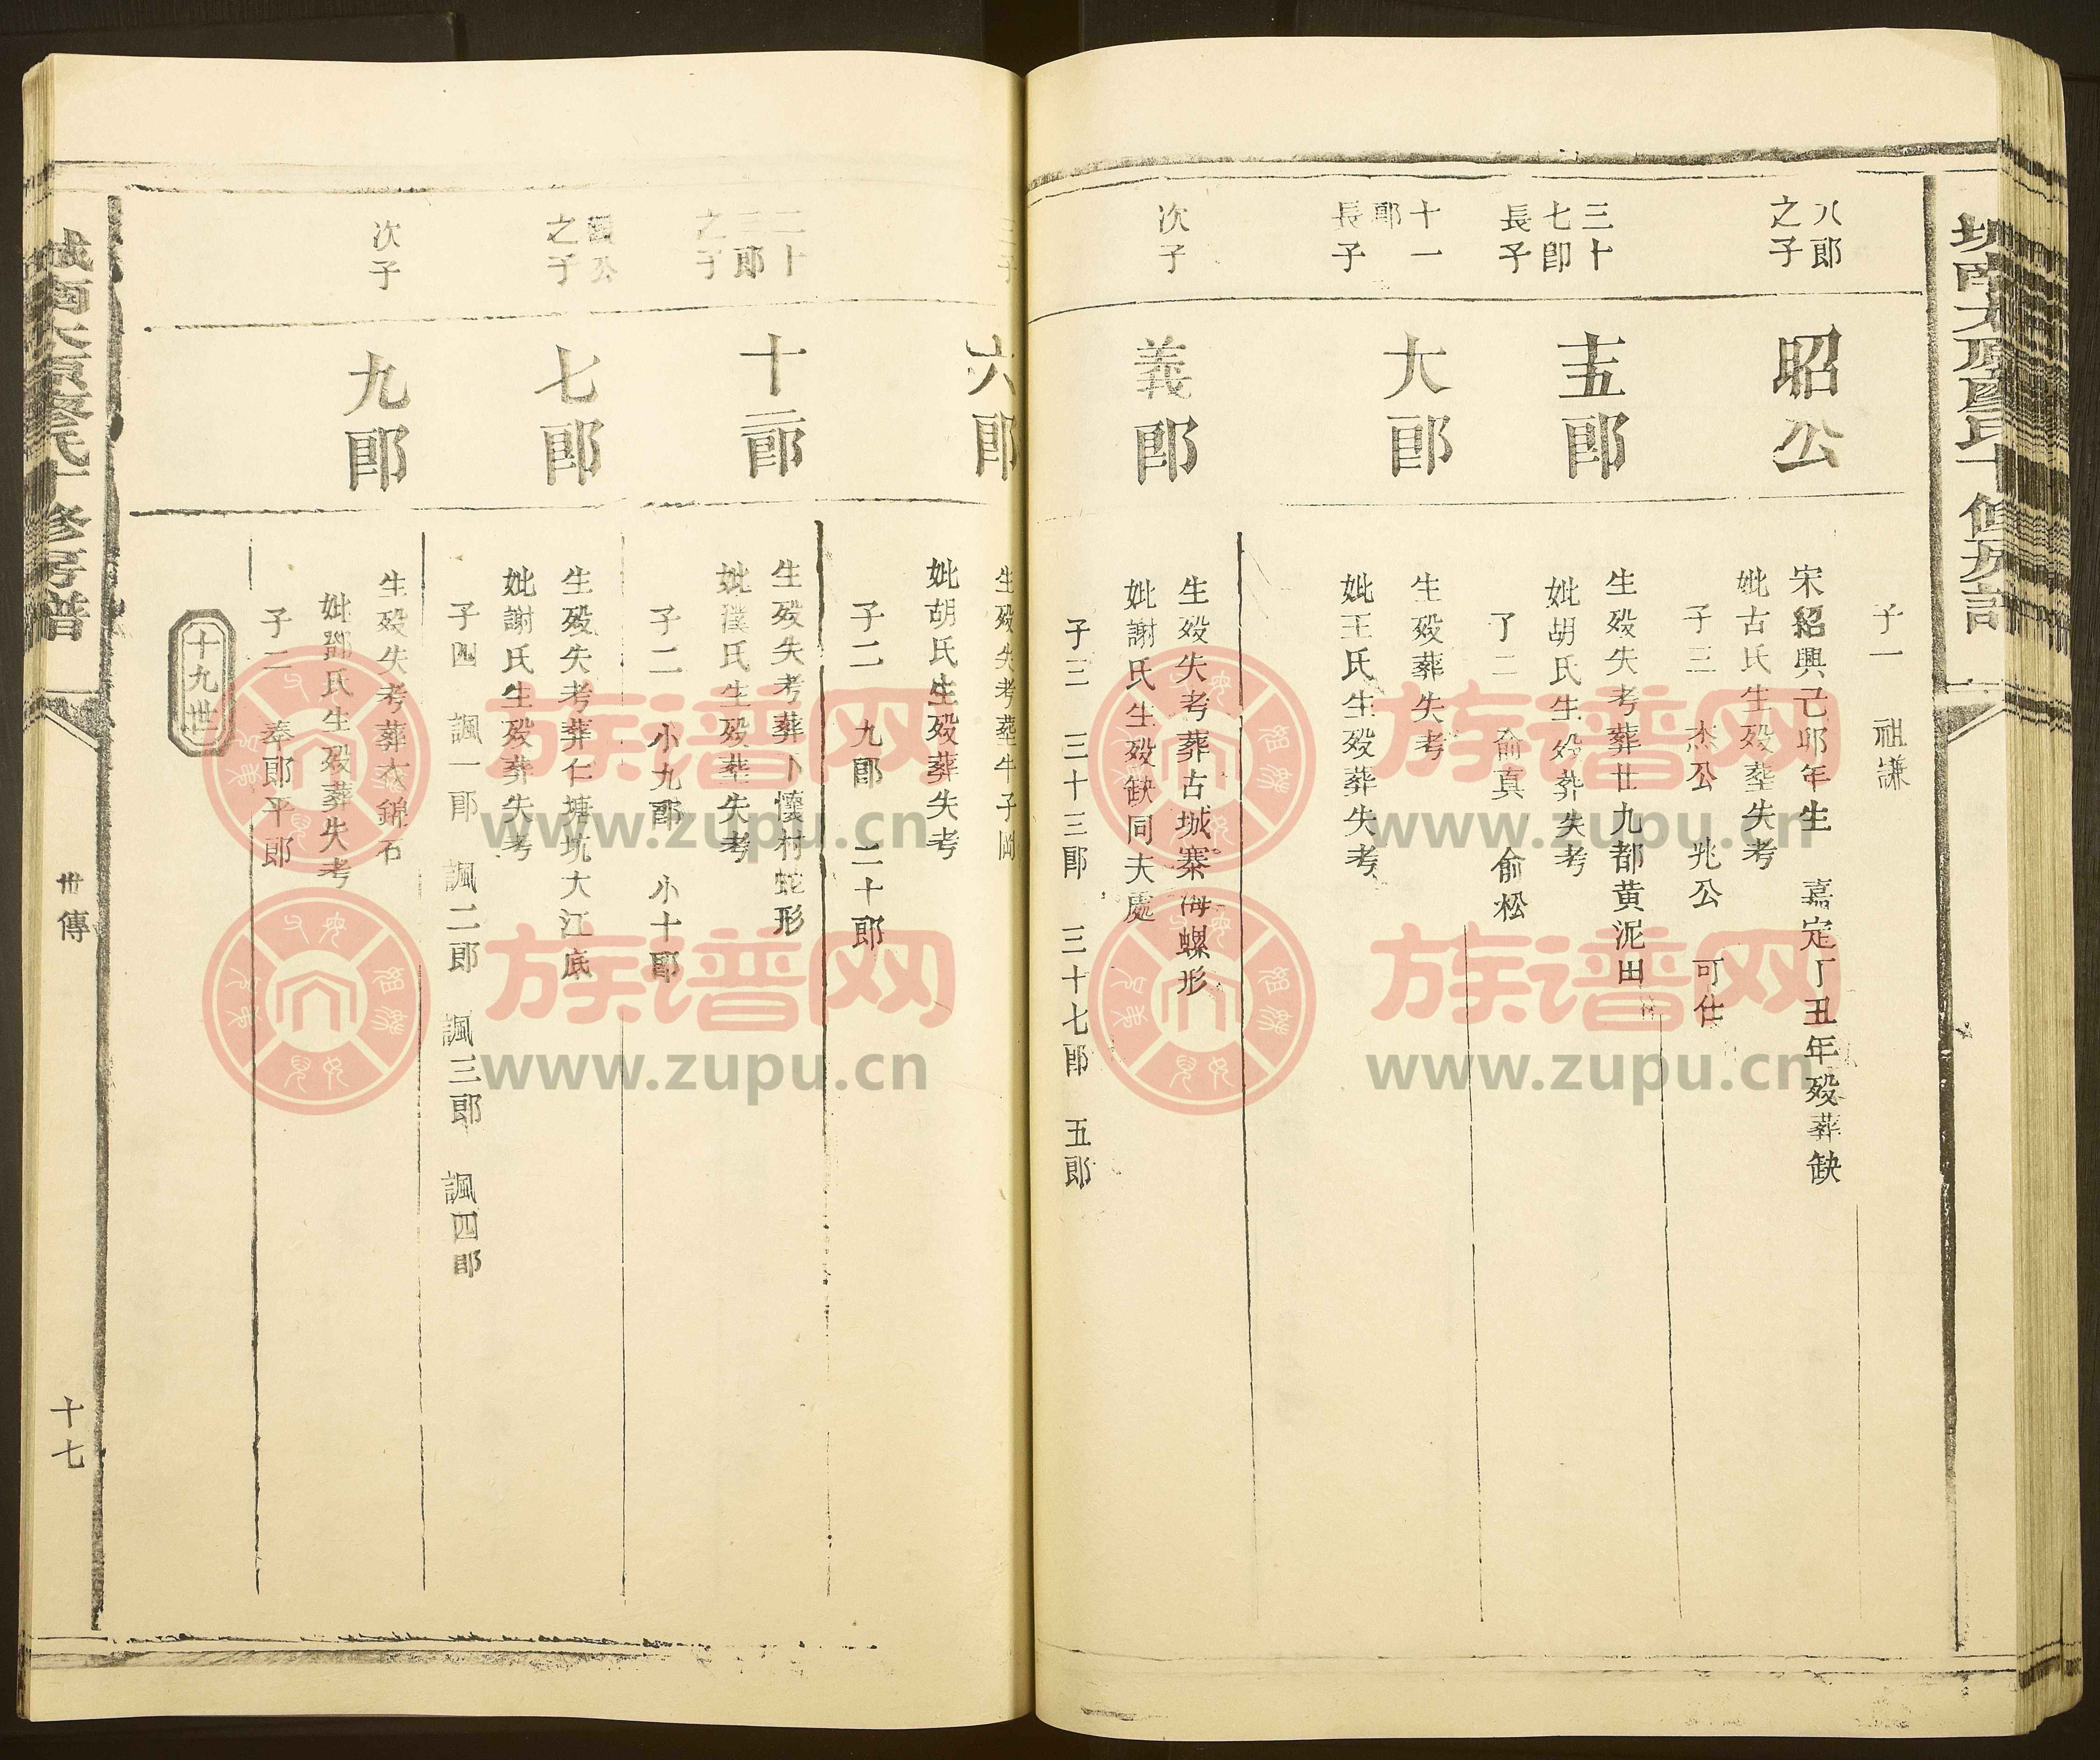 子一 祖謙
八郎
之子
昭公
宋紹興己卯年生 嘉定丁丑年歿葬缺
妣古氏生歿塟失考
子三 杰公 兆公 可仕
三十
七郎
長子
十五郎
生歿失考葬廿九都黄泥田
妣胡氏生歿葬失考
俞真 俞松
十一
郎
長子
大郎
生歿葬失考
妣王氏生歿葬失考
次子
義郎
生歿失考葬古城寨海螺形
妣謝氏生歿缺同夫處
子三 三十三郎 三十七郎 五郎
六郎
生歿失考塟牛子
妣胡氏生歿葬失考
子二 九郎 二十郎
二十
三郎
之子
十二郎
生歿失考葬卜懷村蛇形
妣濮氏生歿塟失考
子二 小九郎 小十郎
公
之子
七郎
生歿失考葬仁塘坑大江底
妣謝氏生歿葬失考
子四 諷一郎 諷二郎 諷三郎 諷四郎
次子
九郎
生歿失考葬衣錦石
妣鄧氏生歿葬失考
子二 奉郎平郎
十九世
城南太原廖氏十修房譜
世傳
十七
族谱网
www.zupu.cn
族谱网
www.zupu.cn
族谱网
www.zupu.cn
族谱网
www.zupu.cn